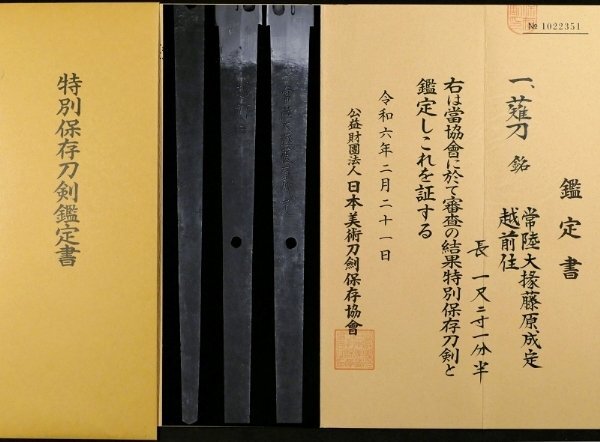 № 1022351
鑑定書
一、薙刀 銘
常陸大掾藤原成定
越前住
長一尺二寸一分半
右は當協會に於て審査の結果特別保存刀剣と
鑑定しこれを証する
令和六年二月二十一日
公益財團法人 日本美術刀劍保存協會
特別保存刀剣鑑定書